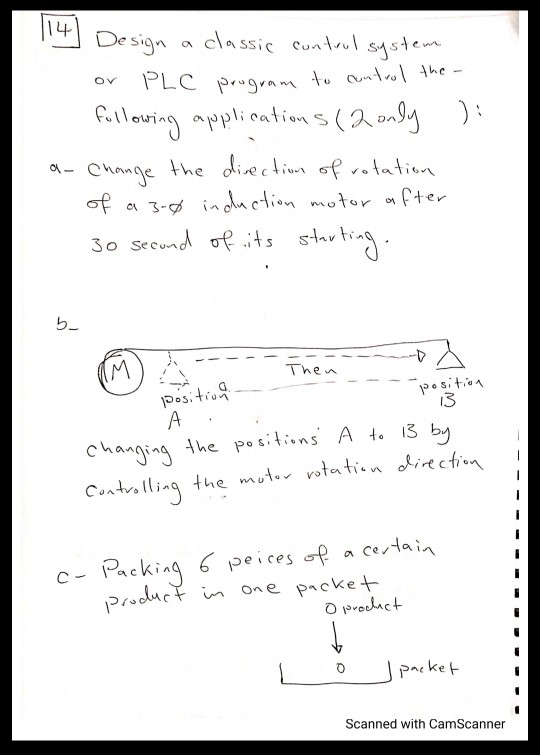 14
Design a classic control system
or PLC program to control the -
following applications (2 only ):
a- Change the direction of rotation
of a 3-Ø induction motor after
30 second of its starting.
b-
M
Then
position
A
position
B
changing the positions A to B by
controlling the motor rotation direction
c- Packing 6 peices of a certain
product in one packet
O product
O
packet
Scanned with CamScanner